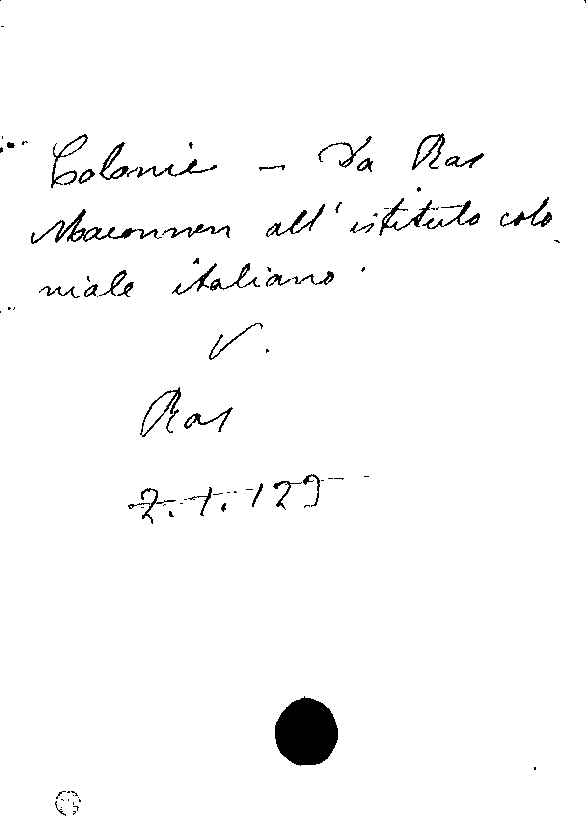 Colonie – Da Ras
Maconnen all' istituto colo
niale italiano.
V.
Ras
2.1.129